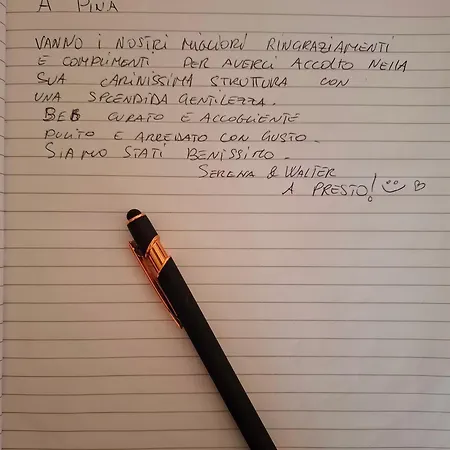 A PINA
VANNO I NOSTRI MIGLIORI RINGRAZIAMENTI
E COMPLIMENTI PER AVERCI ACCOLTO NELLA
SUA CARINISSIMA STRUTTURA CON
UNA SPLENDIDA GENTILEZZA.
BEB CURATO E ACCOGLIENTE
PULITO E ARREDATO CON GUSTO.
SIAMO STATI BENISSIMO.
SERENA & WALTER
A PRESTO!